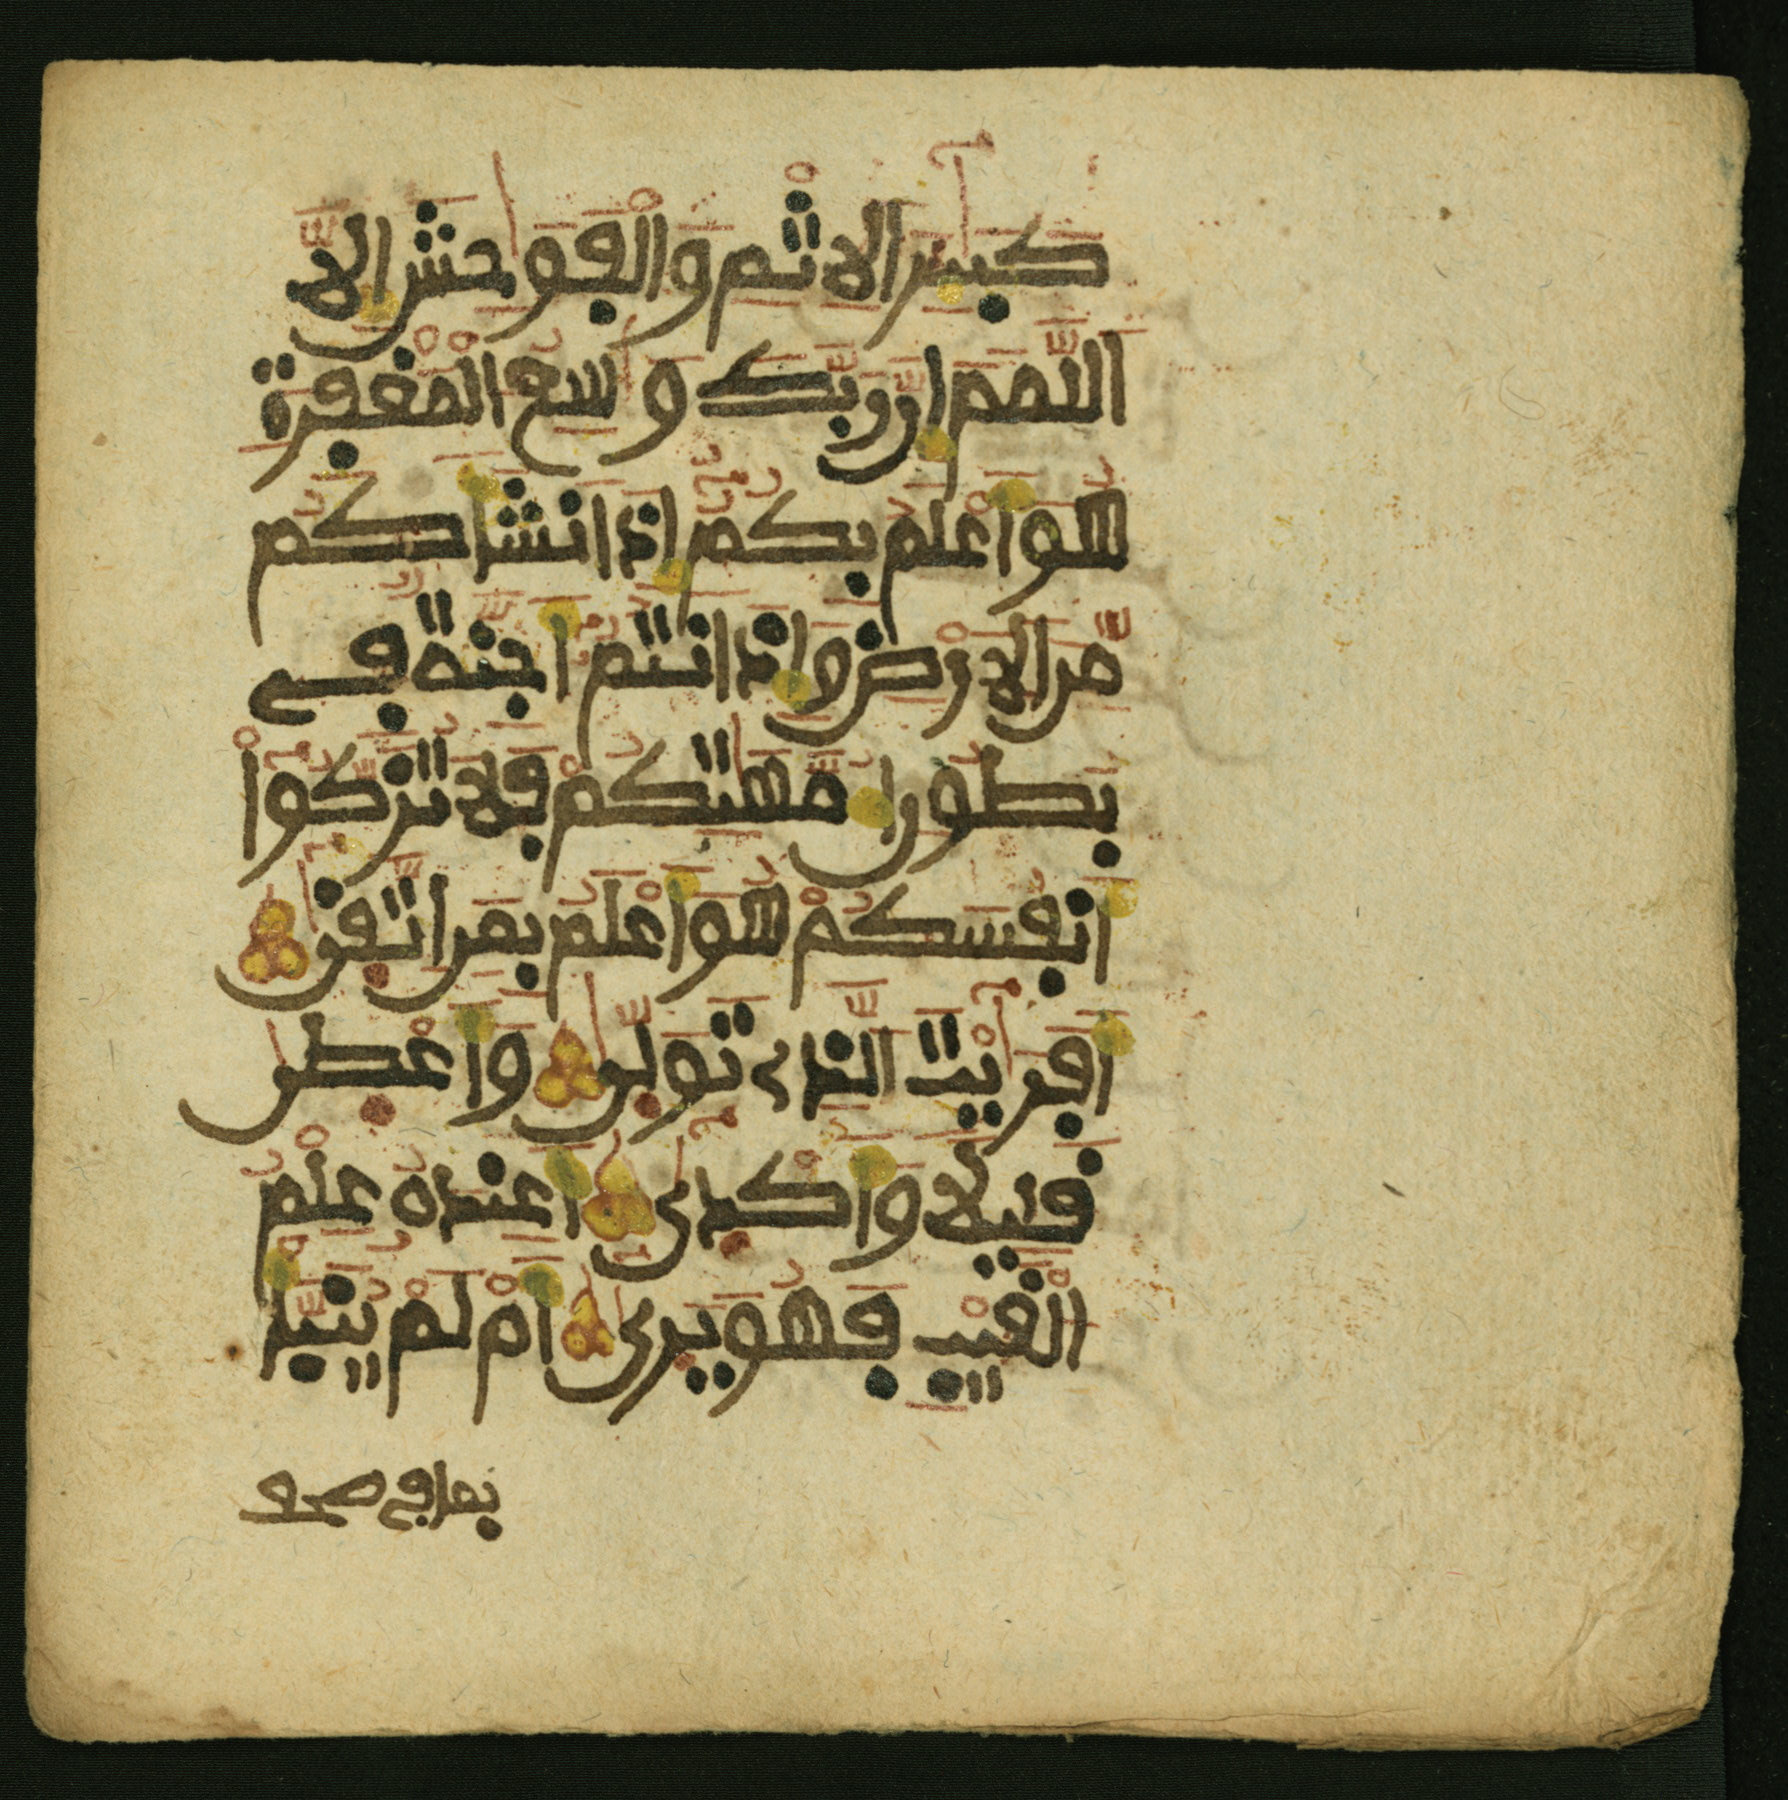 كَبَٰٓئِرَ الِاثْمِ وَالْفَوَٰحِشَ إِلَّا
اللَّمَمَ إِنَّ رَبَّكَ وَٰسِعُ الْمَغْفِرَةِ
هُوَ أَعْلَمُ بِكُمُ إِذَ انشَأَكُم
مِّنَ الَارْضِ وَإِذَ انتُمُ أَجِنَّةٌ فِي
بُطُونِ أُمَّهَٰتِكُمْ فَلَا تُزَكُّوا
أَنفُسَكُمْ هُوَ أَعْلَمُ بِمَنِ اتَّقَىٰ
أَفَرَٰيْتَ الَّذِي تَوَلَّىٰ وَأَعْطَىٰ
قَلِيلًا وَأَكْدَىٰ أَعِندَهُ عِلْمُ
الْغَيْبِ فَهُوَ يَرَىٰ أَمْ لَمْ يُنَبَّأْ
بما في صحف